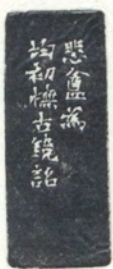 悲盦為
均初橅古鏡銘